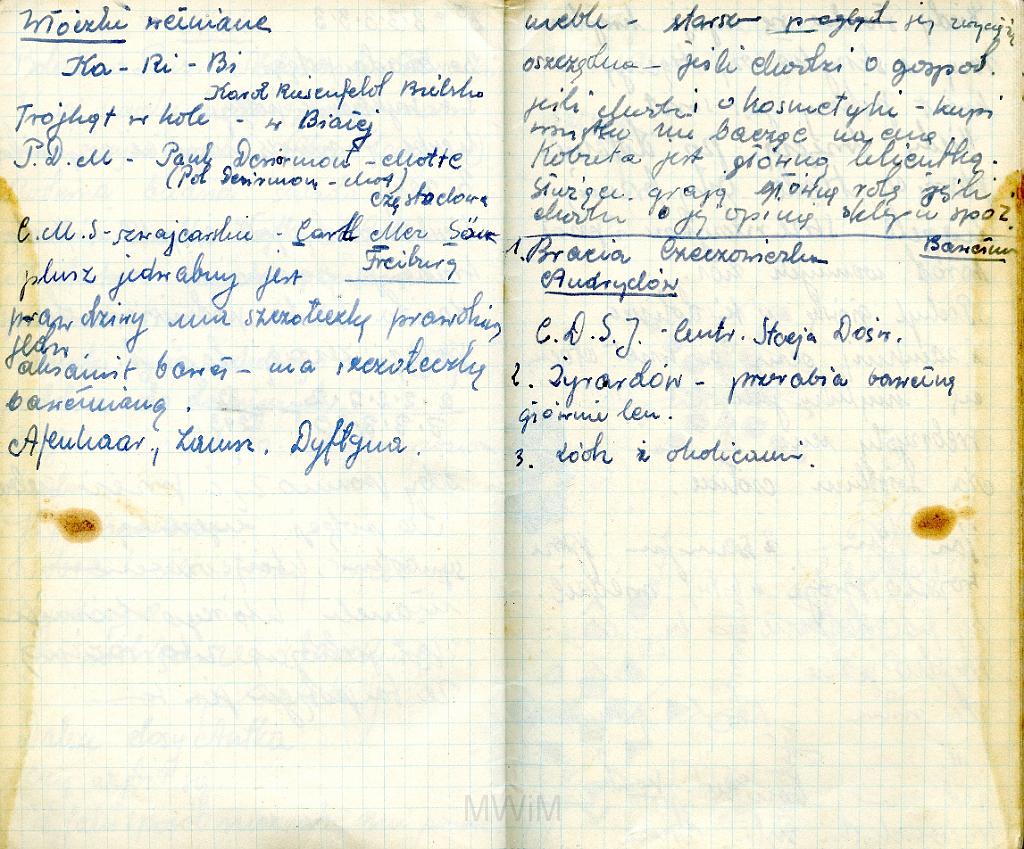 Włóczki wełniane
Ka - Ri - Bi
Karol Riesenfeld Bielsko
Trójkąt w kole - w Białej
P.D.M - Paul Desirmont - Motte
(Pol Desirmon - Mot)
Częstochowa
C.M.S - szwajcarskie - Carl Mez Söhne
Freiburg
plusz jedwabny jest
prawdziwy ma szczoteczkę
aksamit baweł - ma szczoteczkę
bawełnianą.
Dyftyna.
meble - starsze pogląd jej
oszczędna - jeśli chodzi o gospod.
jeśli chodzi o kosmetyki - kupi
wszystko nie bacząc na cenę
Kobieta jest główną klientką.
Służące grają główną rolę jeśli
chodzi o jej opinię sklepu spoż.
1. Bracia Czeczowiczka Bawełna
Andrychów
C.D.S.J. - Centr. Stacja Dośw.
2. Żyrardów - przerabia bawełnę
głównie len.
3. Łódź z okolicami.
MWiM